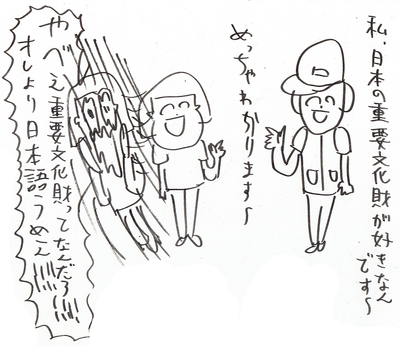 私、日本の重要文化財が好きなん
です〜
めっちゃわかります〜
やべえ重要文化財ってなんだろ!!!
オレより日本語うめえ!!!!